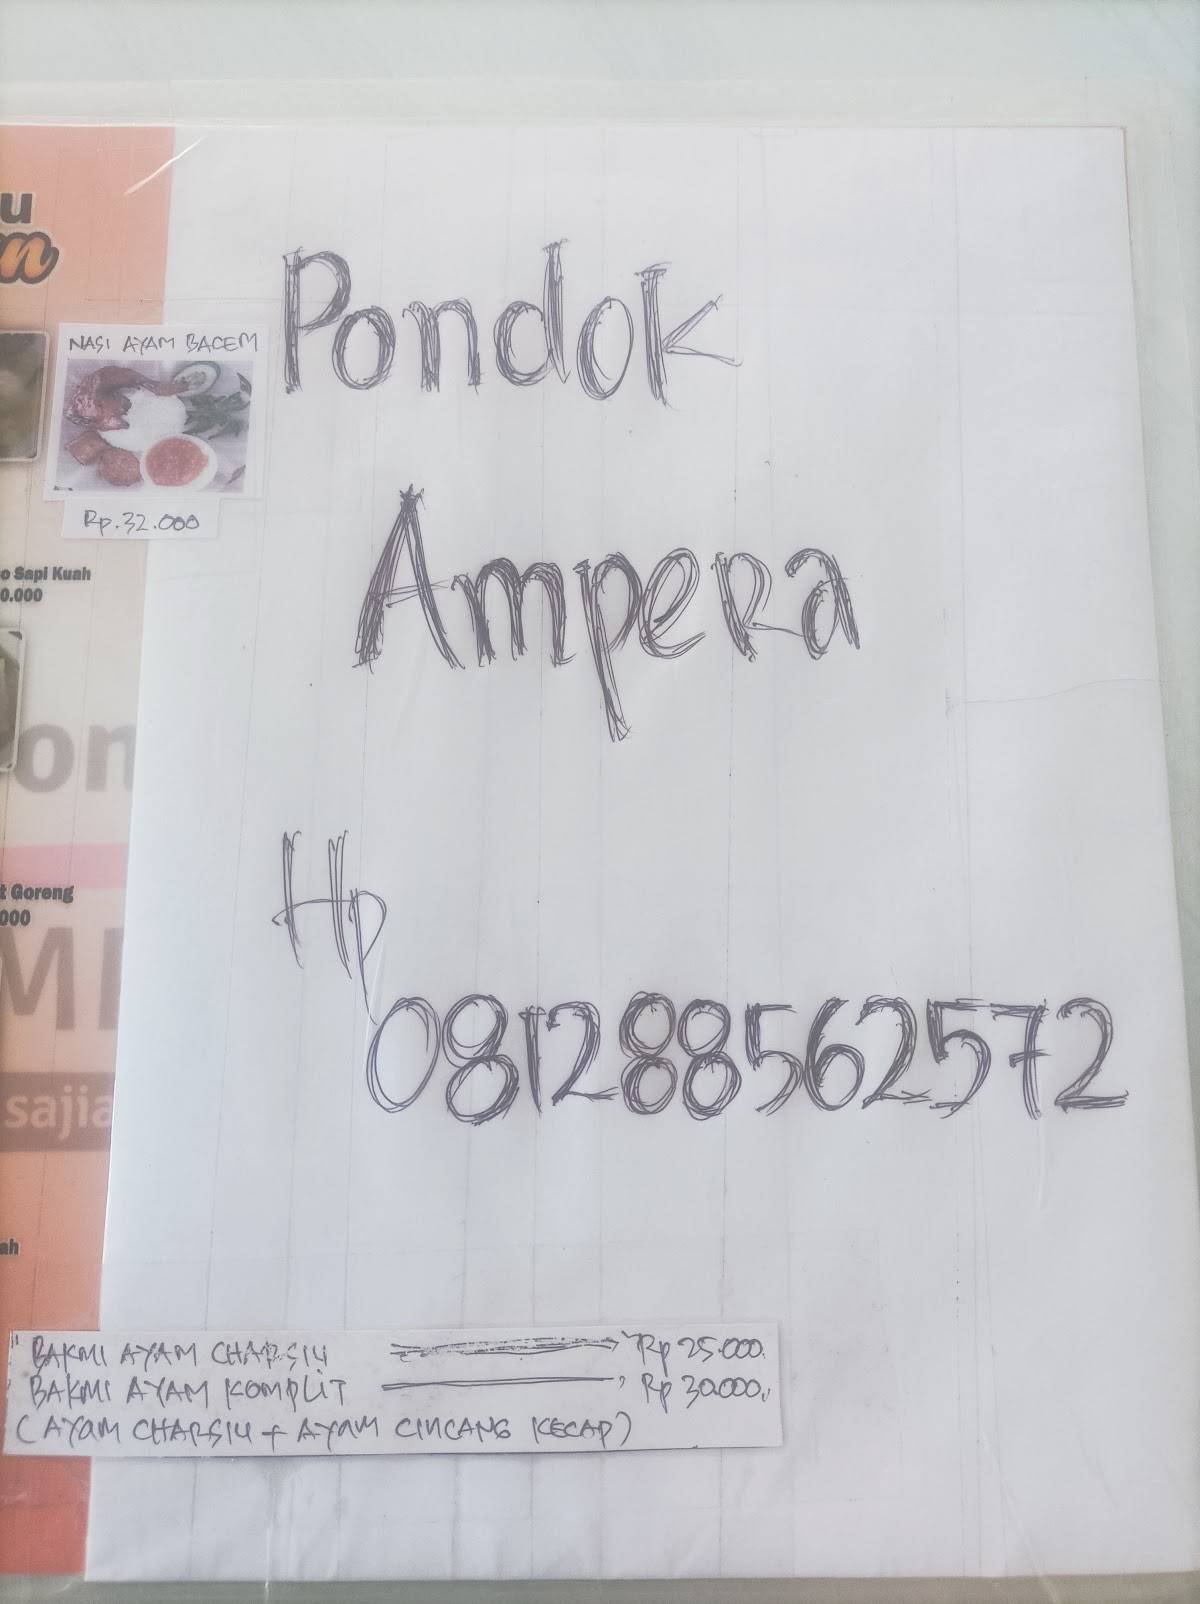 u
n
NASI AYAM BACEM
Rp.32.000
o Sapi Kuah
0.000
Pondok
Ampera
on
t Goreng
000
M
Hp
081288562572
sajia
ah
BAKMI AYAM CHARSIU Rp 25.000.
BAKMI AYAM KOMPLIT Rp 30.000.
(AYAM CHARSIU + AYAM CINCANG KECAP)